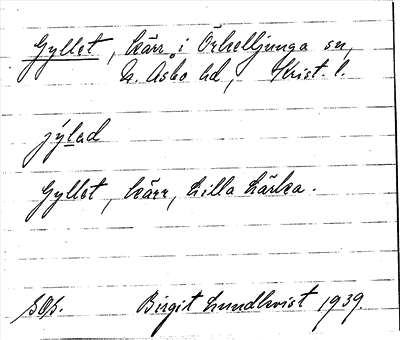 Gyllet, kärr i Örkelljunga sn,
N. Åsbo hd, Krist. l.
jýlad
Gyllet, kärr, Lilla Lärka.
Birgit Lundkvist 1939.